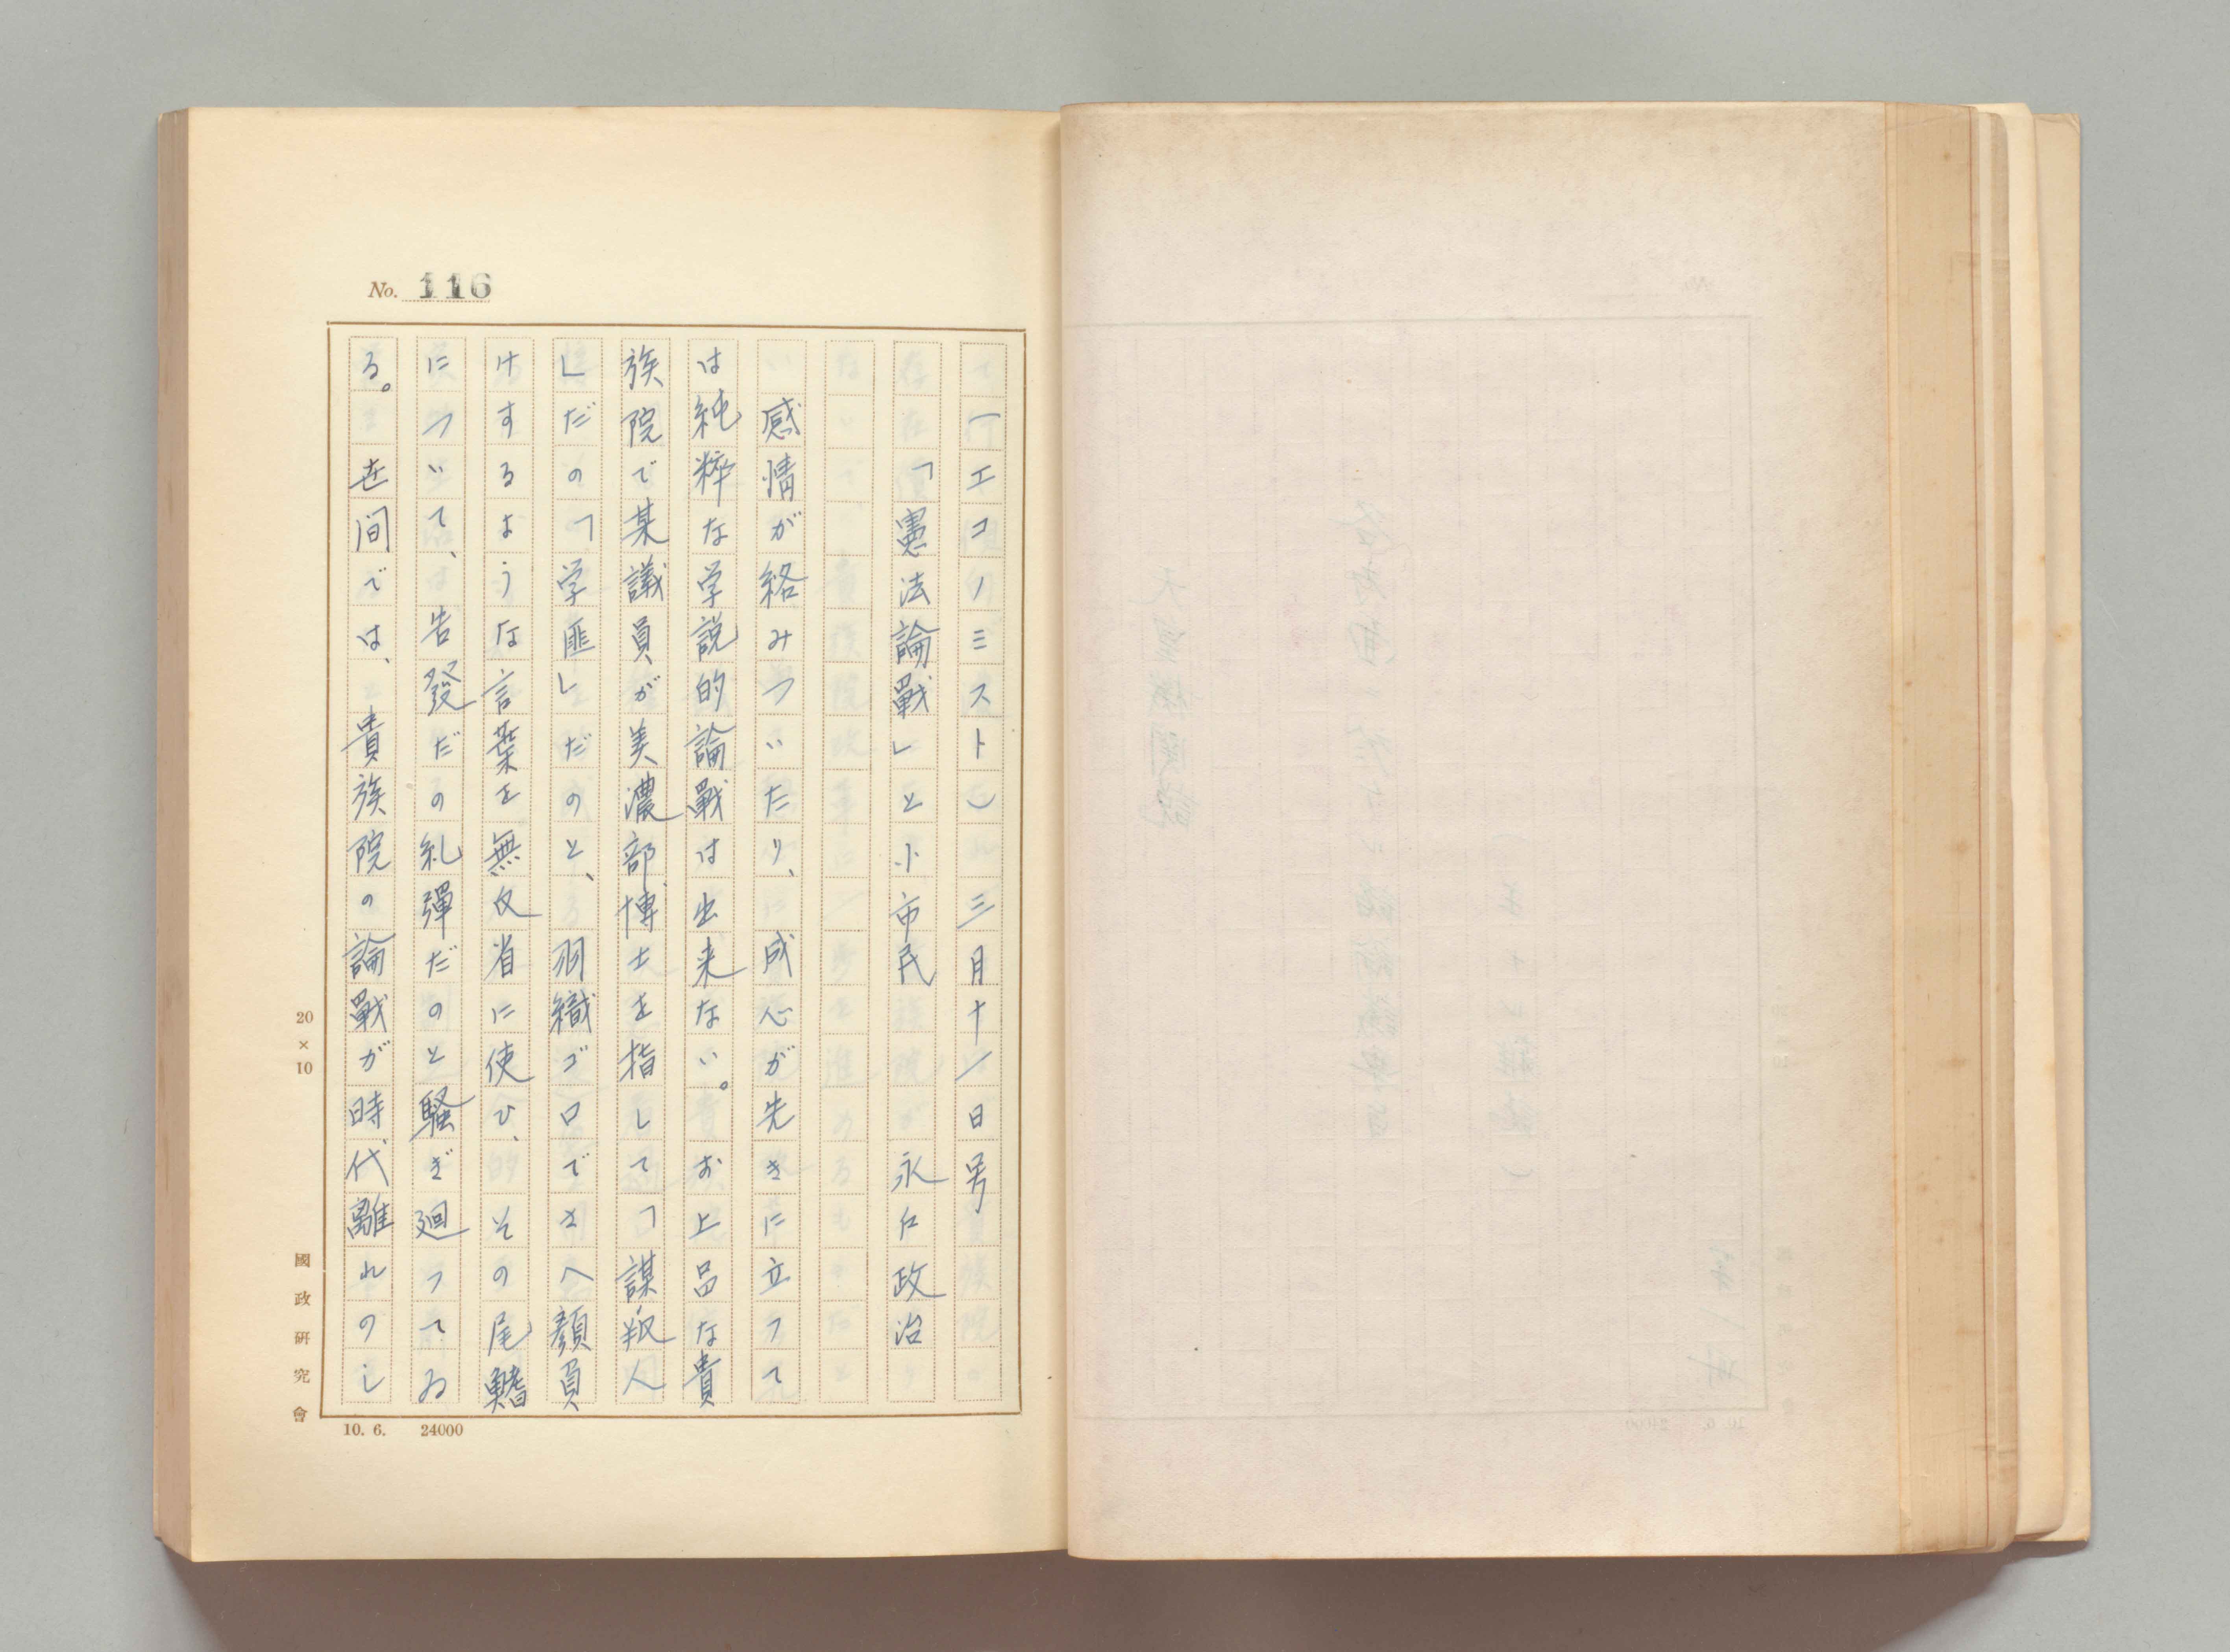 No. 116
(エコノミスト) 三月十一日号
「憲法論戰」と小市民 永戸政治
感情が絡みついたり、成心が先きに立つて
は純粹な学説的論戰は出来ない。お上品な貴
族院で某議員が美濃部博士を指して「謀叛人
しだの「学匪」だのと、羽織ゴロでさへ顔負
けするような言葉を無反省に使ひ、その尾鰭
について、告發だの糺彈だのと騒ぎ廻つてゐ
る。世间では、貴族院の論戰が時代離れのし
20×10
國政研究會
10. 6. 24000